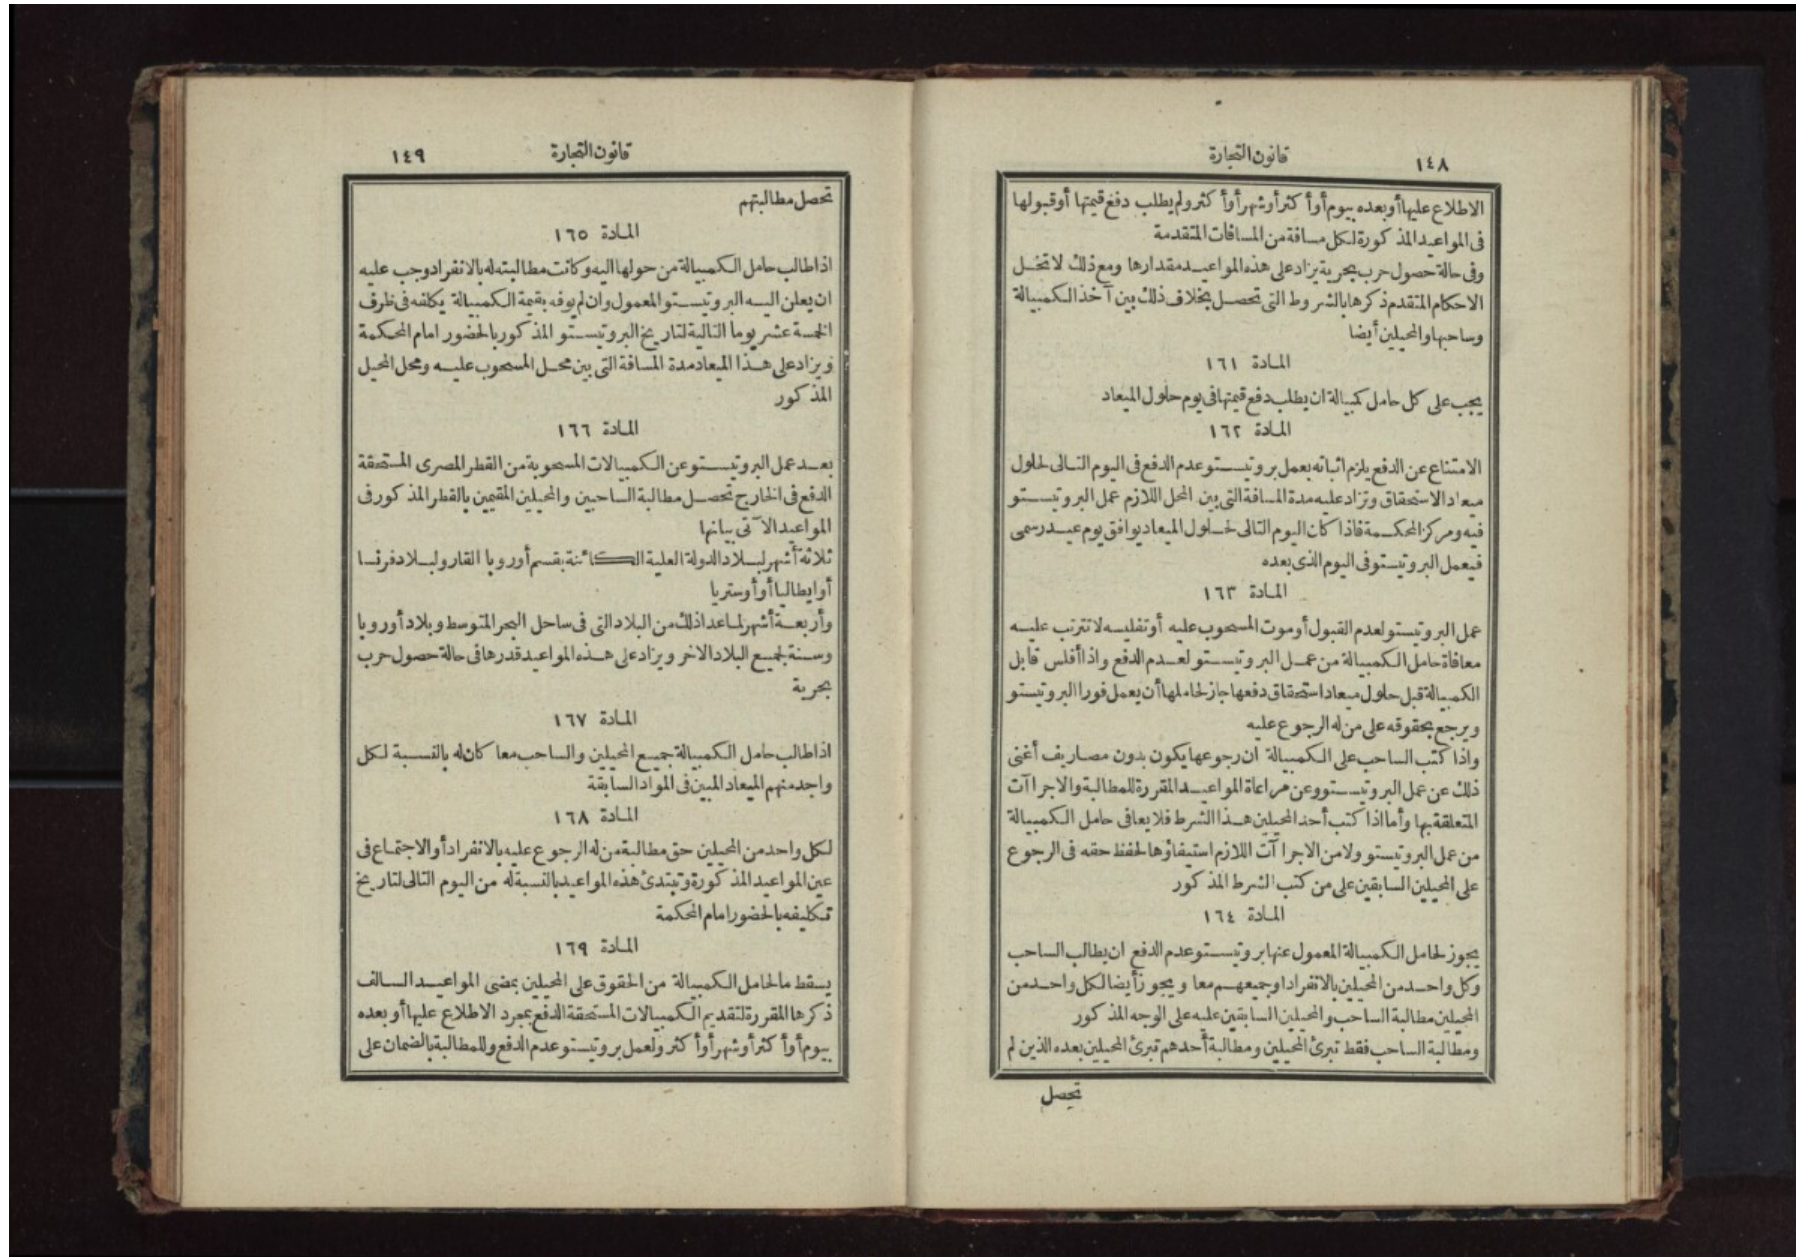 ١٤٨
قانون التجارة
الاطلاع عليها أو بعده بيوم أو أكثر أو شهر أو أكثر ولم يطلب دفع قيمتها أو قبولها
فى المواعيد المذكورة لكل مسافة من المسافات المتقدمة
وفى حالة حصول حرب بحرية يزاد على هذه المواعيد مقدارها ومع ذلك لا تخل
الاحكام المتقدم ذكرها بالشروط التى تحصل بخلاف ذلك بين آخذ الكمبيالة
وساحبها والمحيلين أيضا
المادة ١٦١
يجب على كل حامل كمبيالة ان يطلب دفع قيمتها فى يوم حلول الميعاد
المادة ١٦٢
الامتناع عن الدفع يلزم اثباته بعمل بروتيستو عدم الدفع فى اليوم التالى لحلول
ميعاد الاستحقاق وتزاد عليه مدة المسافة التى بين المحل اللازم عمل البروتيستو
فيه ومركز المحكمة فاذا كان اليوم التالى لحلول الميعاد يوافق يوم عيد رسمى
فيعمل البروتيستو فى اليوم الذى بعده
المادة ١٦٣
عمل البروتيستو لعدم القبول أو موت المسحوب عليه أو تفليسه لا تترتب عليه
معافاة حامل الكمبيالة من عمل البروتيستو لعدم الدفع واذا أفلس قابل
الكمبيالة قبل حلول ميعاد استحقاق دفعها جاز لحاملها أن يعمل فورا البروتيستو
ويرجع بحقوقه على من له الرجوع عليه
واذا كتب الساحب على الكمبيالة ان رجوعها يكون بدون مصاريف أغنى
ذلك عن عمل البروتيستو وعن مراعاة المواعيد المقررة للمطالبة والاجراآت
المتعلقة بها وأما اذا كتب أحد المحيلين هذا الشرط فلا يعافى حامل الكمبيالة
من عمل البروتيستو ولا من الاجراآت اللازم استيفاؤها لحفظ حقه فى الرجوع
على المحيلين السابقين على من كتب الشرط المذكور
المادة ١٦٤
يجوز لحامل الكمبيالة المعمول عنها بروتيستو عدم الدفع ان يطالب الساحب
وكل واحد من المحيلين بالانفراد او جميعهم معا ويجوز أيضا لكل واحد من
المحيلين مطالبة الساحب والمحيلين السابقين عليه على الوجه المذكور
ومطالبة الساحب فقط تبرئ المحيلين ومطالبة أحدهم تبرئ المحيلين بعده الذين لم
تحصل
قانون التجارة
١٤٩
تحصل مطالبتهم
المادة ١٦٥
اذا طالب حامل الكمبيالة من حولها اليه وكانت مطالبته له بالانفراد وجب عليه
ان يعلن اليه البروتيستو المعمول وان لم يوفه بقيمة الكمبيالة يكلفه فى ظرف
الخمسة عشر يوما التالية لتاريخ البروتيستو المذكور بالحضور امام المحكمة
ويزاد على هذا الميعاد مدة المسافة التى بين محل المسحوب عليه ومحل المحيل
المذكور
المادة ١٦٦
بعد عمل البروتيستو عن الكمبيالات المسحوبة من القطر المصرى المستحقة
الدفع فى الخارج تحصل مطالبة الساحبين والمحيلين المقيمين بالقطر المذكور فى
المواعيد الآتى بيانها
ثلاثة أشهر لبلاد الدولة العلية الكائنة بقسم أوروپا القار ولبلاد فرنسا
أو ايطاليا أو أوستريا
وأربعة أشهر لما عدا ذلك من البلاد التى فى ساحل البحر المتوسط وبلاد أوروپا
وسنة لجميع البلاد الاخر ويزاد على هذه المواعيد قدرها فى حالة حصول حرب
بحرية
المادة ١٦٧
اذا طالب حامل الكمبيالة جميع المحيلين والساحب معا كان له بالنسبة لكل
واحد منهم الميعاد المبين فى المواد السابقة
المادة ١٦٨
لكل واحد من المحيلين حق مطالبة من له الرجوع عليه بالانفراد أو الاجتماع فى
عين المواعيد المذكورة وتبتدئ هذه المواعيد بالنسبة له من اليوم التالى لتاريخ
تكليفه بالحضور امام المحكمة
المادة ١٦٩
يسقط ما لحامل الكمبيالة من الحقوق على المحيلين بمضى المواعيد السالف
ذكرها المقررة لتقديم الكمبيالات المستحقة الدفع بمجرد الاطلاع عليها أو بعده
بيوم أو أكثر أو شهر أو أكثر ولعمل بروتيستو عدم الدفع وللمطالبة بالضمان على